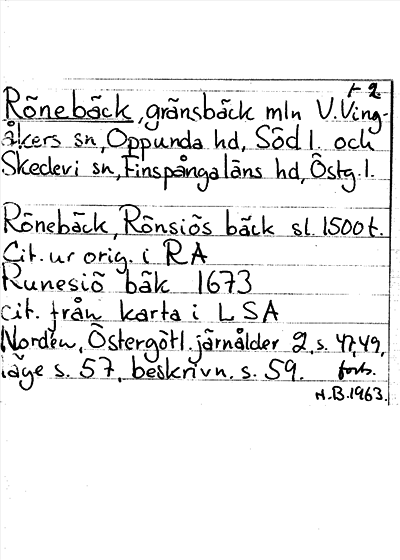 1-2
Rönebäck, gränsbäck mln V. Ving-
åkers sn, Oppunda hd, Söd l. och
Skedevi sn, Finspångaläns hd, Östg. l.
Rönebäck, Rönsiös bäck sl. 1500 t.
Cit. ur orig. i RA
Runesiö bäk 1673
cit. från karta i LSA
Nordén, Östergötl. järnålder 2, s. 47,49,
läge s. 57, beskrivn. s. 59. forts.
N.B. 1963.